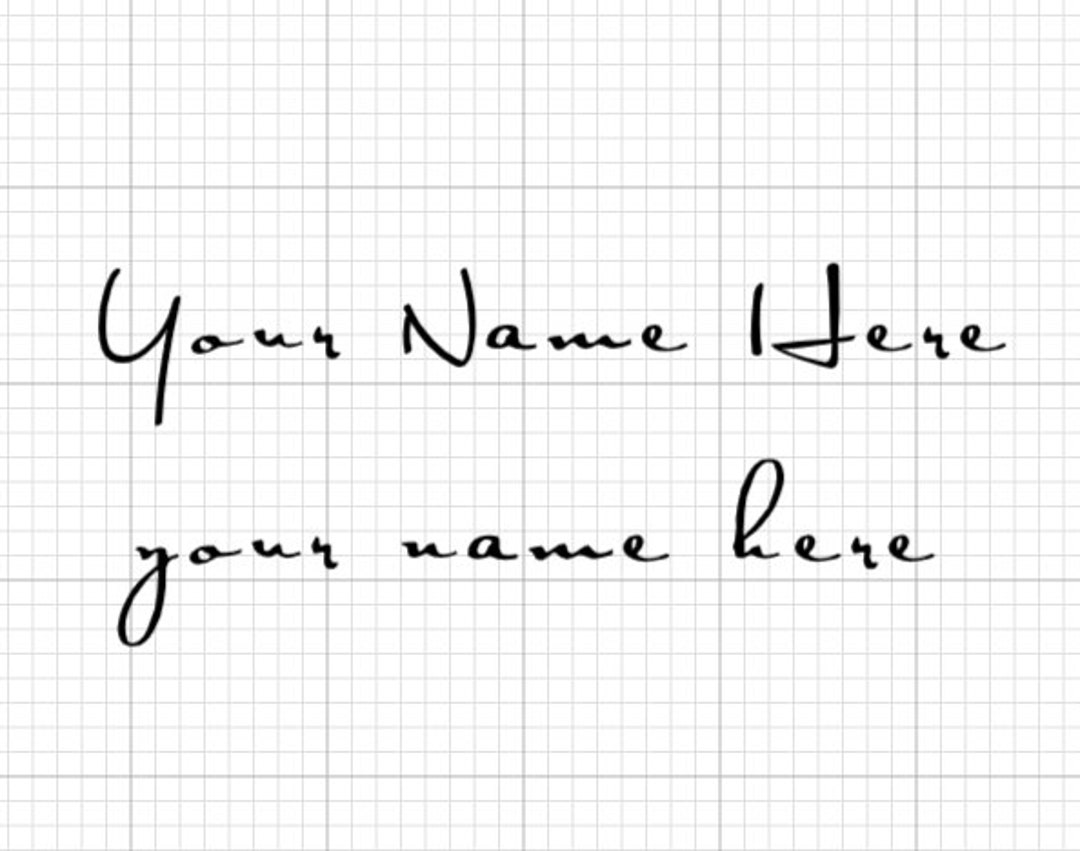 Your Name Here
your name here